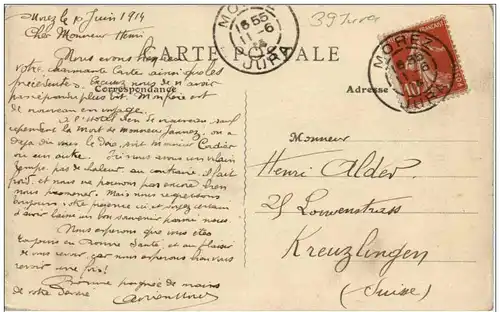 Morez le 10 Juin 1914
Cher Monsieur Henri
CARTE POSTALE
MOREZ
16 55
11-6
14
JURA
39 Jura
MOREZ
11-6
JURA
10
Correspondance
Adresse
Nous avons bien reçu
votre charmante Carte ainsi que les
précédentes. Excusez nous de n'avoir
pas répondu plus vite. Mon père est
de nouveau en voyage.
A l'Hôtel rien de nouveau, sauf
seulement la mort de monsieur
déjà dû vous le dire, soit Monsieur Cordier
ou un autre. Ici nous avons un vilain
temps, pas de chaleur, au contraire, il fait
froid, et nous ne pouvons pas encore bien
nous promener. Mais nous regrettons
toujours votre présence ici et soyez certain
d'avoir laissé un bon souvenir parmi nous.
Nous espérons que vous êtes
toujours en bonne santé, et au plaisir
de vous revoir, car nous espérons bien vous
revoir une fois!
Bonne poignée de mains
de votre
Monsieur
Henri Alder
Louwenstrass
Kreuzlingen
(Suisse)